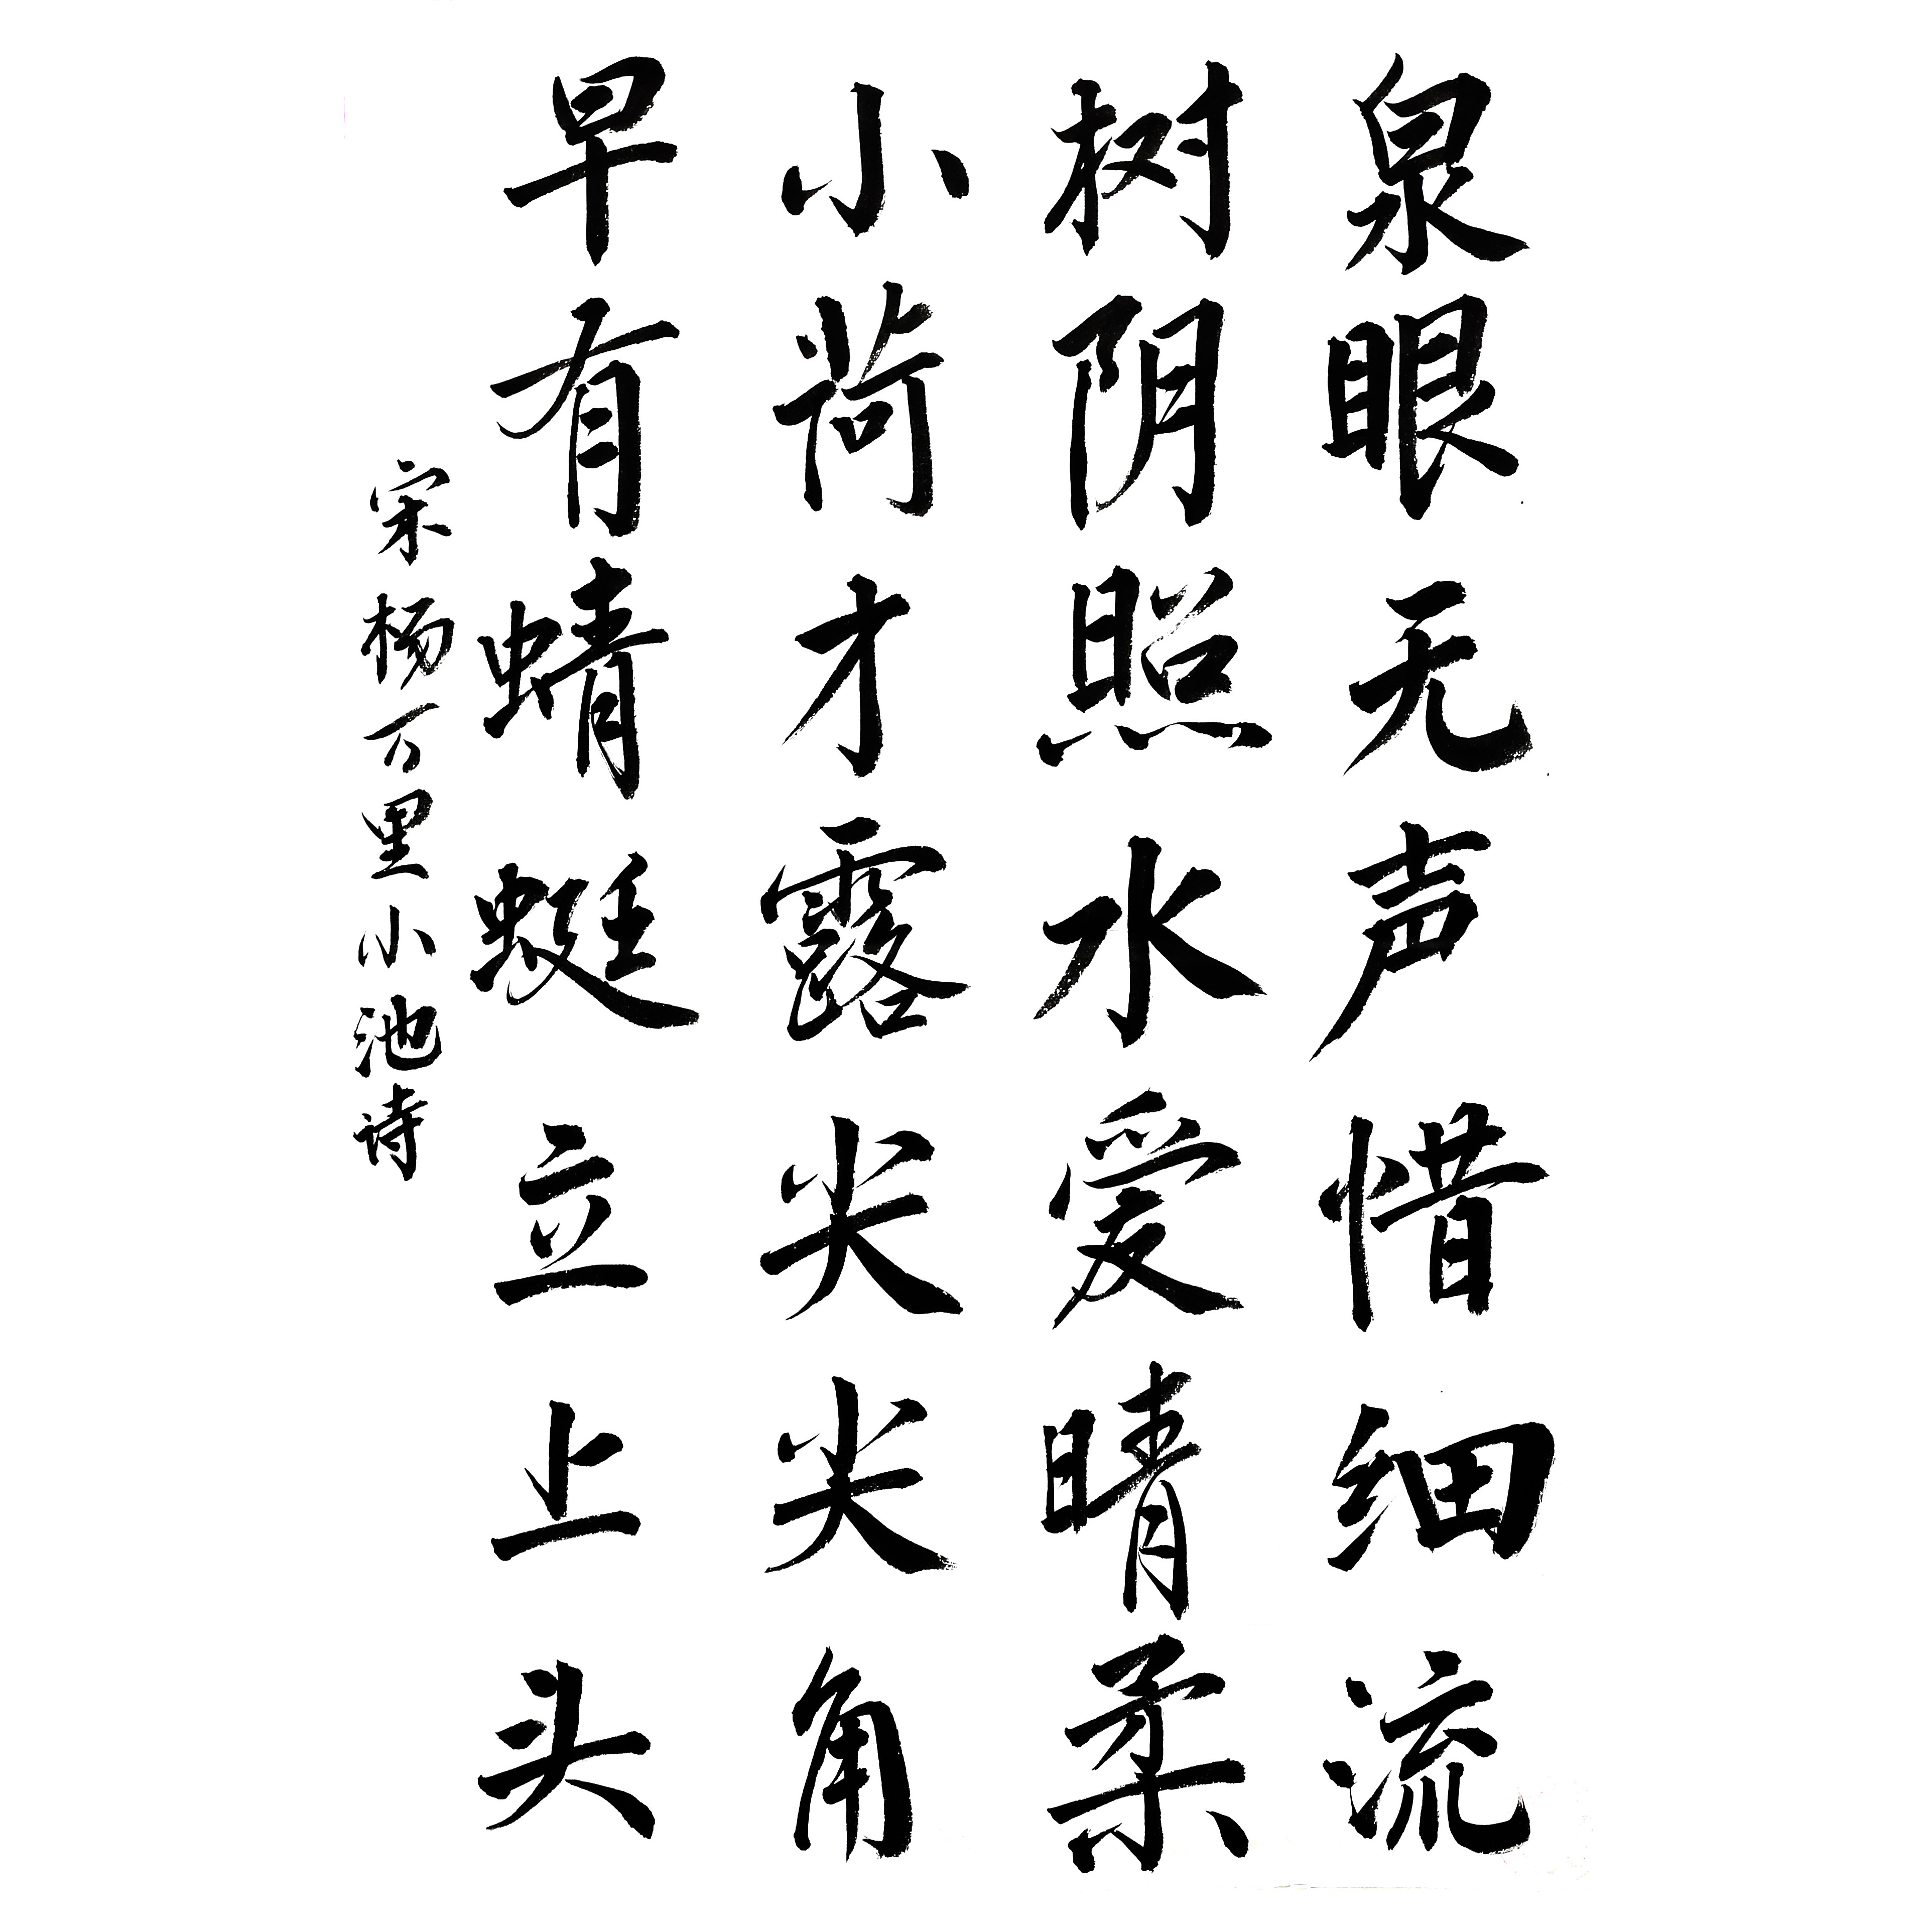 泉眼无声惜细流
树阴照水爱晴柔
小荷才露尖尖角
早有蜻蜓立上头
宋杨万里小池诗